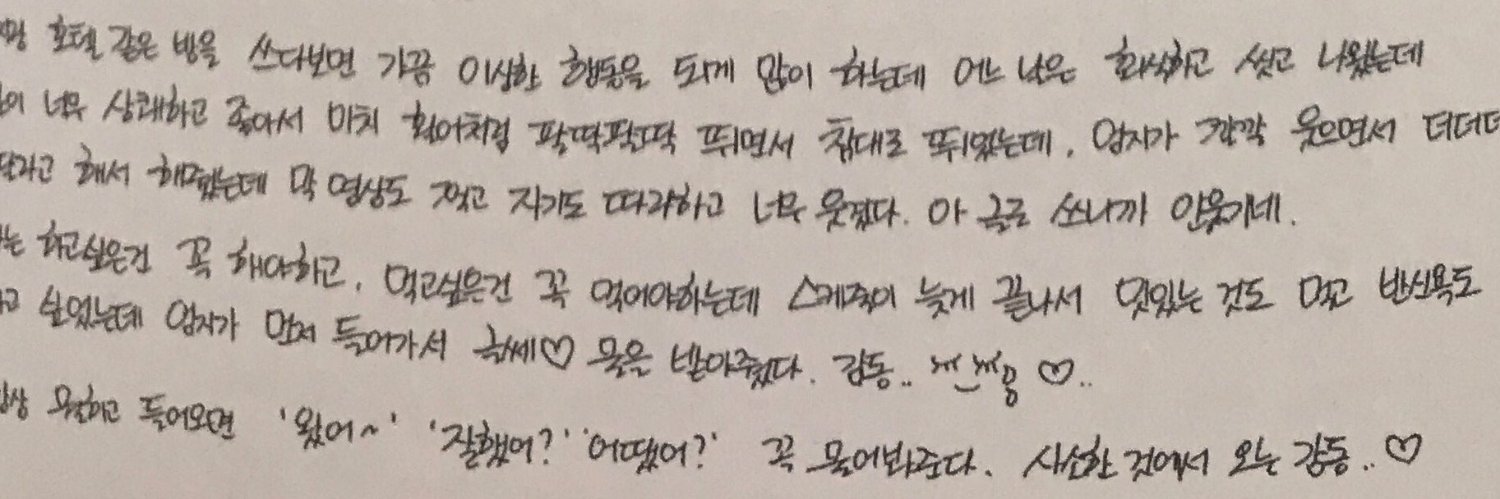 호텔 같은 방을 쓰다보면 가끔 이상한 행동을 되게 많이 하는데 어느 날은 회식하고 씻고 나왔는데
너무 상쾌하고 좋아서 마치 활어처럼 팔딱팔딱 뛰면서 침대로 뛰었는데, 엄지가 깔깔 웃으면서 더더더
달라고 해서 해줬는데 막 영상도 찍고 자기도 따라하고 너무 웃겼다. 아 글로 쓰니까 안웃기네.
하고싶은건 꼭 해야하고, 먹고싶은건 꼭 먹어야하는데 스케줄이 늦게 끝나서 맛있는 것도 먹고 반신욕도
싶었는데 엄지가 먼저 들어가서 글쎄♡ 물을 받아줬다. 감동.. ♡..
못하고 들어오면 '왔어~' '잘했어?' '어땠어?' 꼭 물어봐준다. 사소한 것에서 오는 감동..♡